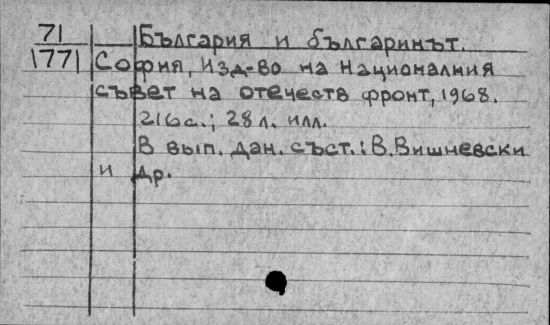 71 България и българинът.
1771 София, Изд-во на Националния
съвет на отечеств фронт, 1968.
216с.; 28л. илл.
В вып. дан. съст.: В. Вишневски
и др.